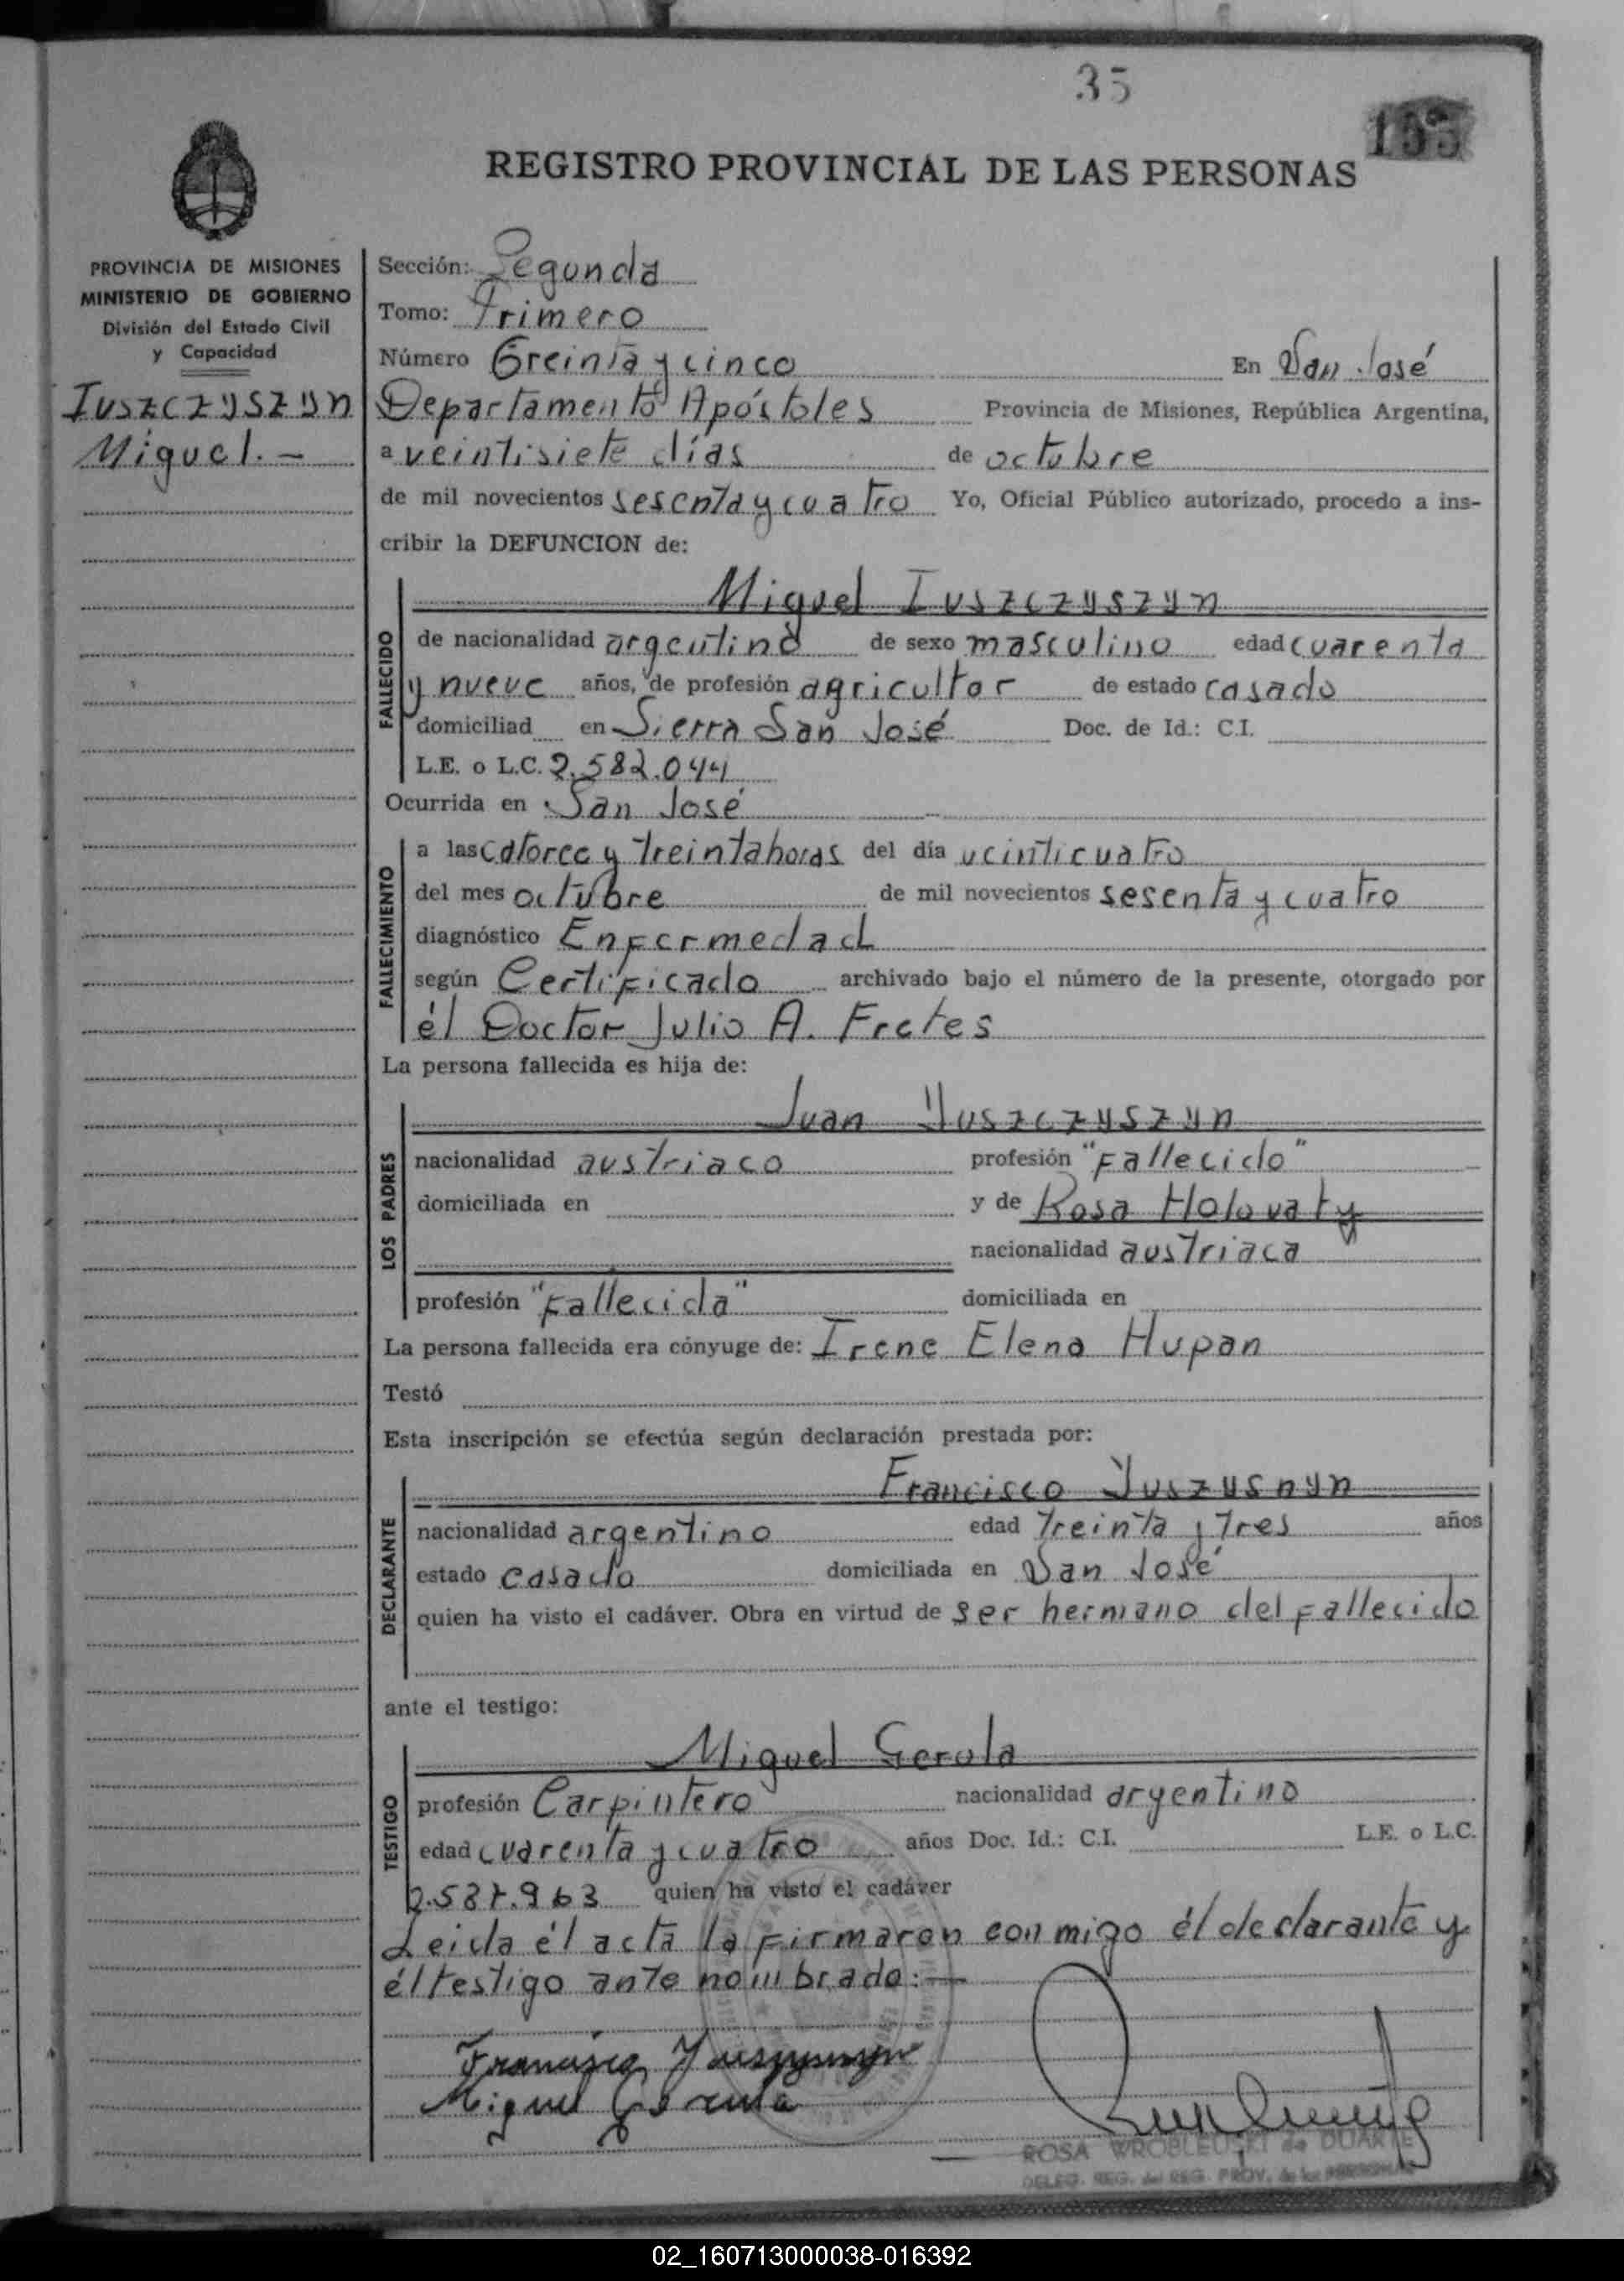 35
REGISTRO PROVINCIAL DE LAS PERSONAS
PROVINCIA DE MISIONES
MINISTERIO DE GOBIERNO
División del Estado Civil
y Capacidad
Iuszczyszyn
Miguel.-
Sección: Segunda
Tomo: Primero
Número Treinta y cinco En San José
Departamento Apóstoles Provincia de Misiones, República Argentina,
a veintisiete días de octubre
de mil novecientos sesenta y cuatro Yo, Oficial Público autorizado, procedo a ins-
cribir la DEFUNCION de:
Miguel Iuszczyszyn
FALLECIDO
de nacionalidad argentino de sexo masculino edad cuarenta
y nueve años, de profesión agricultor de estado casado
domiciliad en Sierra San José Doc. de Id.: C.I.
L.E. o L.C. 2.582.044
Ocurrida en San José
FALLECIMIENTO
a las catorce y treinta horas del día veinticuatro
del mes octubre de mil novecientos sesenta y cuatro
diagnóstico Enfermedad
según Certificado archivado bajo el número de la presente, otorgado por
él Doctor Julio A. Fretes
La persona fallecida es hija de:
LOS PADRES
Juan Yuszczyszyn
nacionalidad austriaco profesión "Fallecido"
domiciliada en y de Rosa Holovaty
nacionalidad austriaca
profesión "Fallecida" domiciliada en
La persona fallecida era cónyuge de: Irene Elena Hupan
Testó
Esta inscripción se efectúa según declaración prestada por:
DECLARANTE
Francisco Yuszysnyn
nacionalidad argentino edad treinta y tres años
estado casado domiciliada en San José
quien ha visto el cadáver. Obra en virtud de ser hermano del fallecido
ante el testigo:
TESTIGO
Miguel Gerula
profesión Carpintero nacionalidad argentino
edad cuarenta y cuatro años Doc. Id.: C.I. L.E. o L.C.
2.587.963 quien ha visto el cadáver
Leida él acta la firmaron conmigo él declarante y
él testigo ante nombrado:—
Francisco
Miguel Gerula
ROSA WROBLEUSKI de DUARTE
DELEG. REG. del REG. PROV. de las PERSONAS
02_160713000038-016392